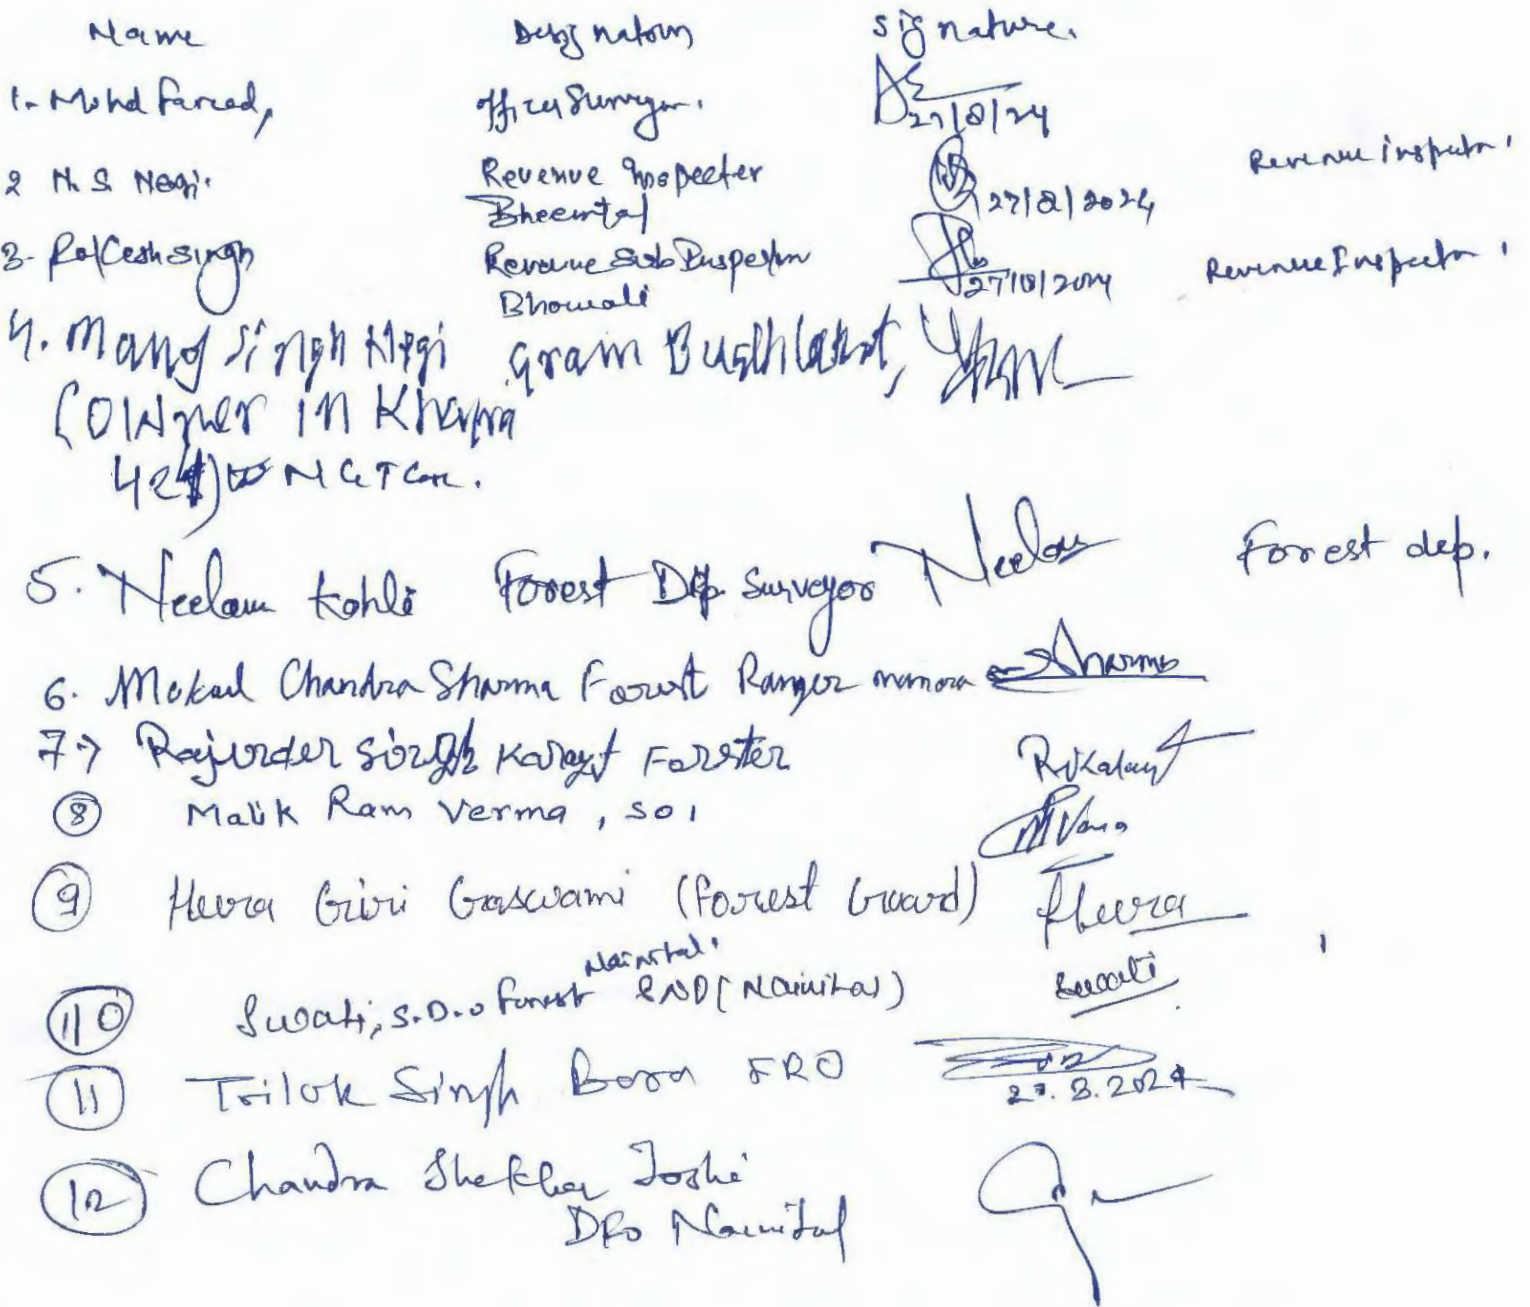 Name Designatoin Signature.
1- Mohd Fareed, Officer Surveyor. 27/8/24
2 N. S. Negi. Revenue Inspecter 27/8/2024 Revenue inspector.
Bheemtal
3- Rakesh Singh Revenue Sub Inspector 27/8/2024 Revenue Inspector.
Bhowali
4. Mang Singh Negi gram
(Owner in Khasra
421) NGT Case.
5. Neelam Kohli Forest Dep. Surveyor Neelam Forest dep.
6. Mukul Chandra Sharma Forest Ranger manora Sharma
7-> Rajinder Singh Karayt Forster
8 Malik Ram Verma, SOI
9 Heera Giri Goswami (Forest Guard) Heera
Nainital.
10 Swati, S.D.O Forest SND (Nainital) Swati
11 Trilok Singh Bora FRO
27.8.2024
12 Chandra Shekhar Joshi
DRO Nainital